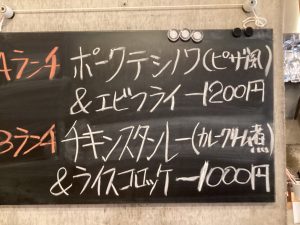 Aランチ ポークテシノワ(ピザ風)
&エビフライー1200円
Bランチ チキンスタンレー(カレークリーム煮)
&ライスコロッケー1000円